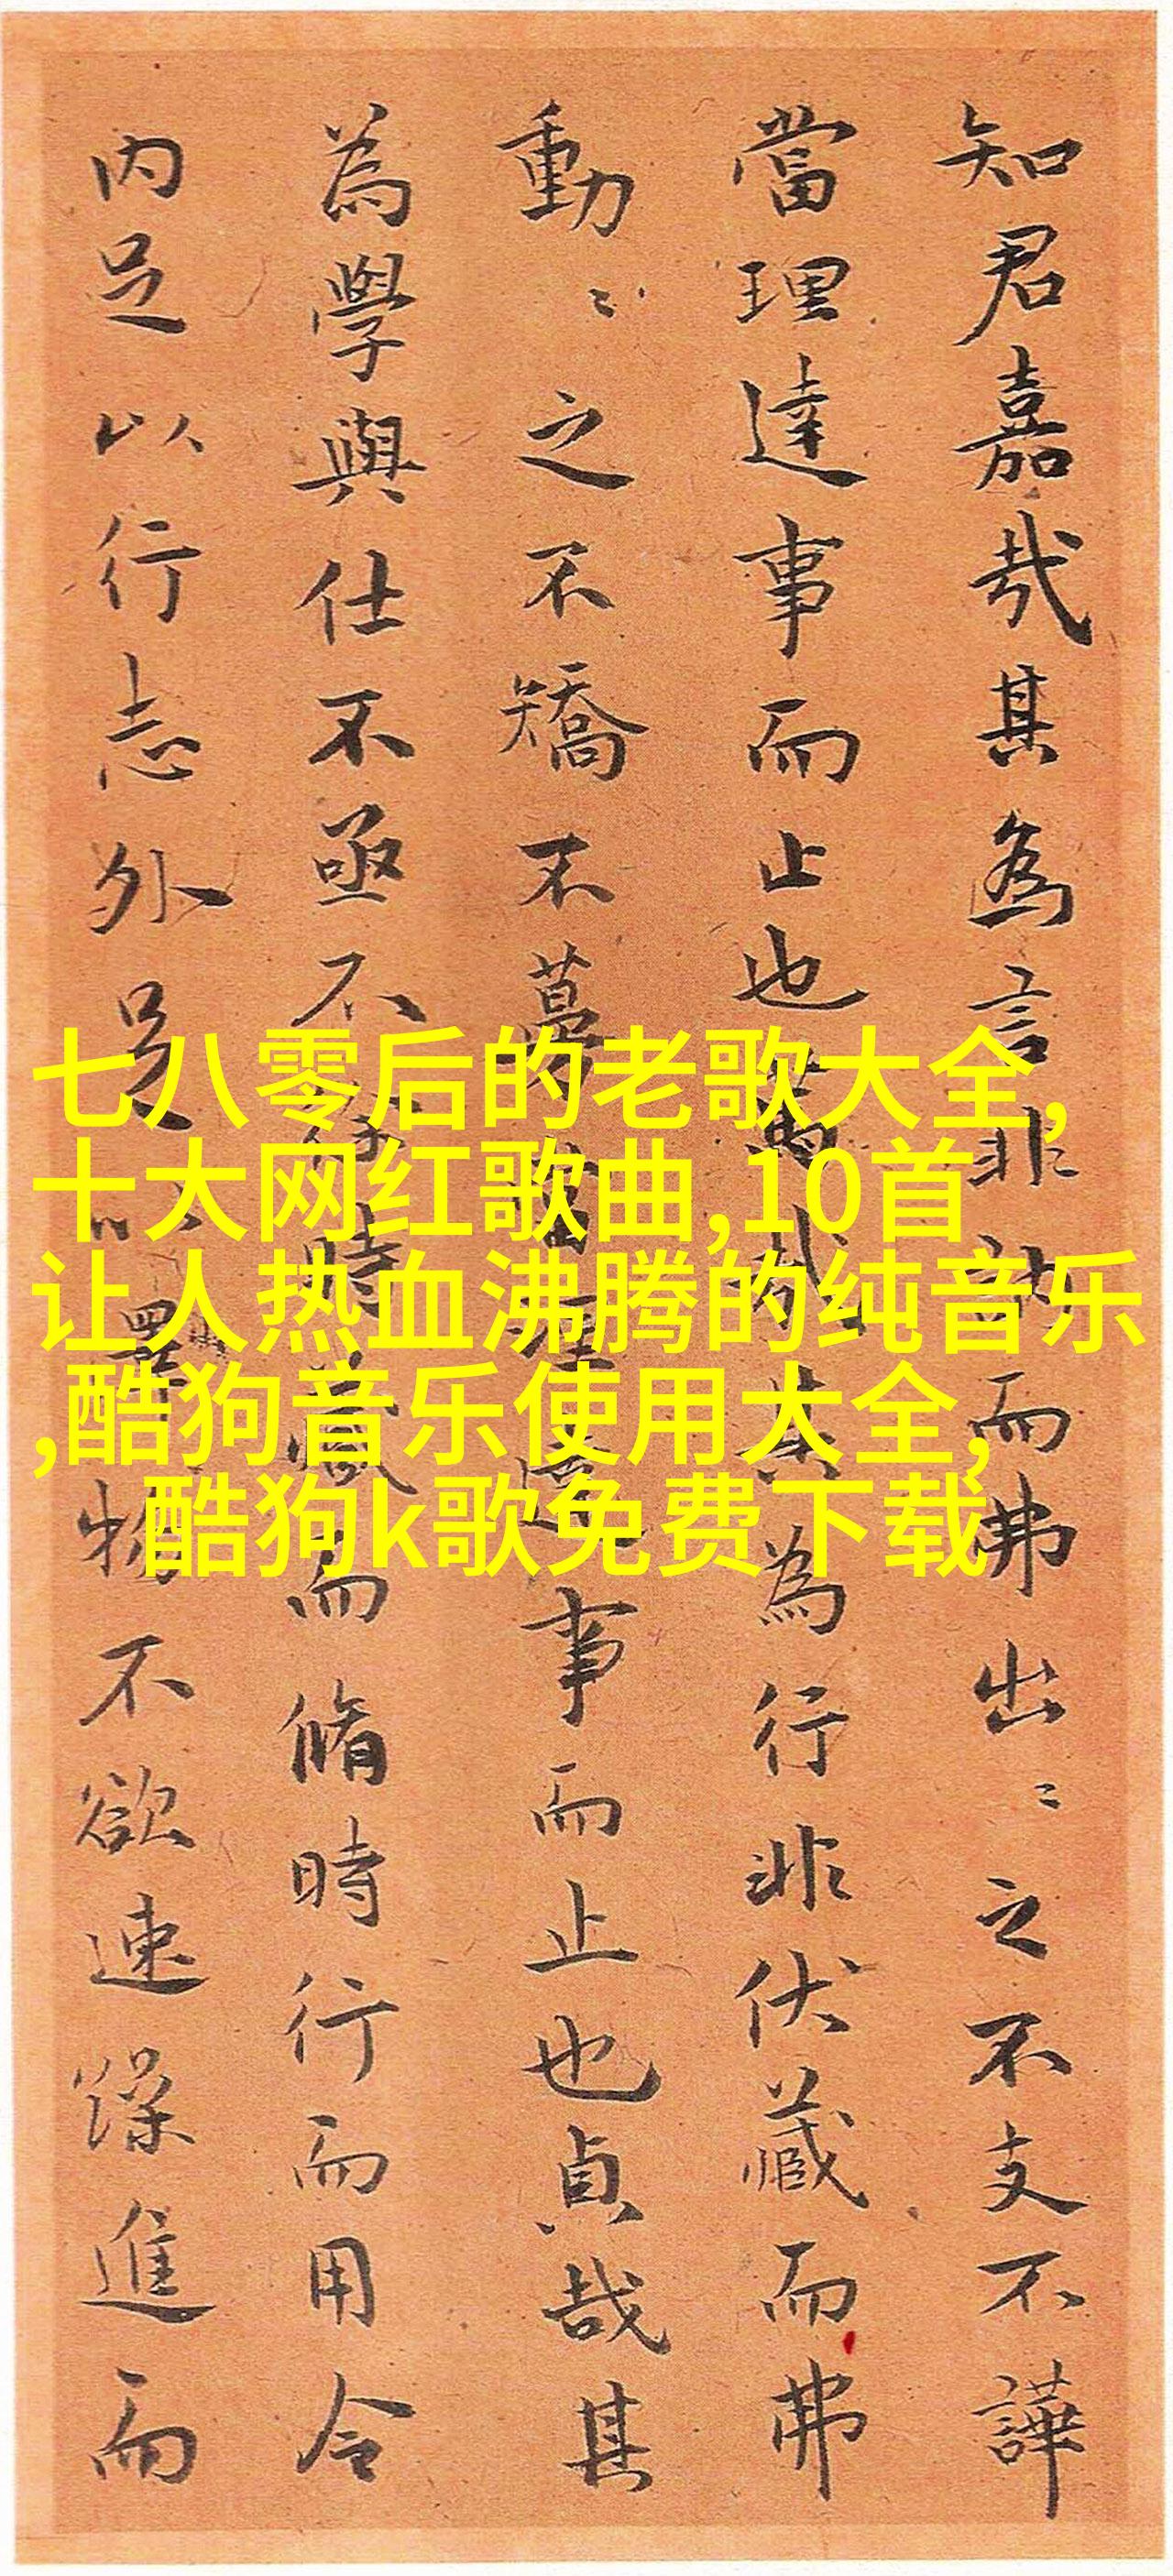 知君嘉哉其為言非訥而弗出〻之不支不譁
當理達事而止也哉其為行非伏藏而弗
動〻之不矯不當理達事而止也貞哉其
為學與仕不亟不時藏而脩時行而用令
內足以行志外足以澤物不欲速躁進而
七八零后的老歌大全,
十大网红歌曲,10首
让人热血沸腾的纯音乐
,酷狗音乐使用大全,
酷狗k歌免费下载